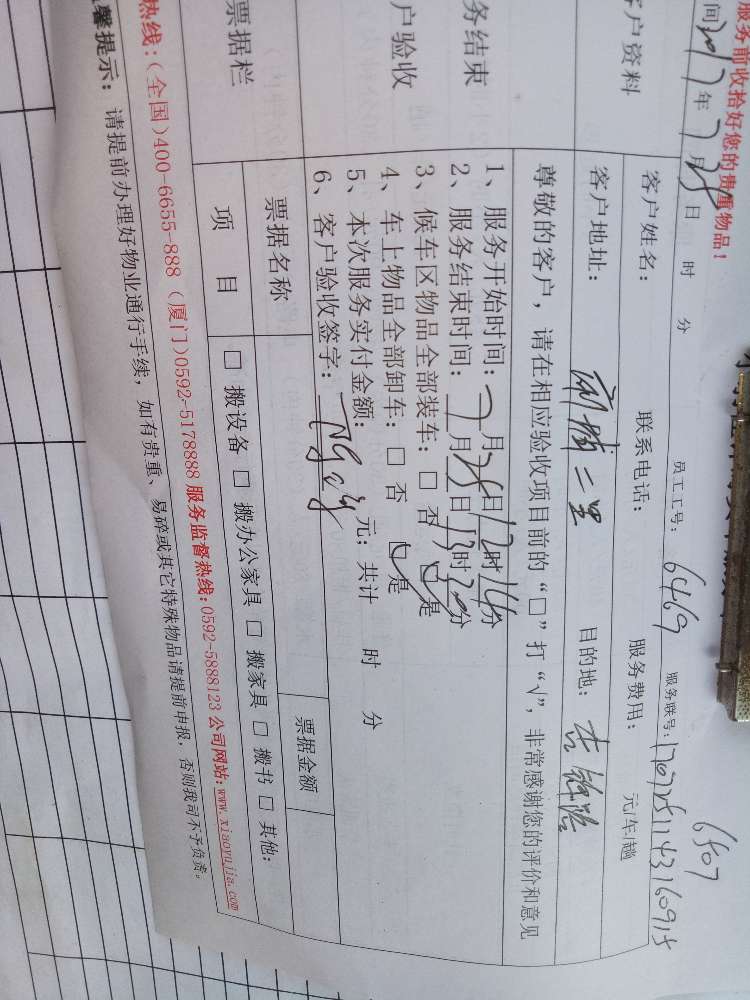 服务前收拾好您的贵重物品！
6507
间2017年7月25日 时 分 员工工号：6469 服务联号：
户资料 客户姓名： 联系电话： 服务费用： 元/车/趟
客户地址： 二里 目的地：
尊敬的客户，请在相应验收项目前的“□”打“√”，非常感谢您的评价和意见
务结束
户验收
1、服务开始时间：7月25日12时14分
2、服务结束时间：7月25日13时20分
3、候车区物品全部装车：□ 否 ☑ 是
4、车上物品全部卸车：□ 否 ☑ 是
5、本次服务实付金额： 元；共计 时 分
6、客户验收签字：
票据栏 票据名称 票据金额
项 目 □ 搬设备 □ 搬办公家具 □ 搬家具 □ 搬书 □ 其他：
热线：(全国)400-6655-888 (厦门)0592-5178888 服务监督热线：0592-5888123 公司网站：www.xiaoyujia.com
馨提示：请提前办理好物业通行手续，如有贵重、易碎或其它特殊物品请提前申报，否则我司不予负责。